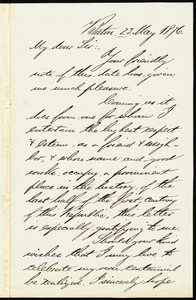 Boston, 22 May 1876.
My dear Sir:
Your friendly
note of this date has given
me much pleasure.
Coming as it
does from one for whom I
entertain the highest respect
& esteem, as a friend & neigh-
bor, & whose name and good
works, occupy a prominent
place in the history of the
last half of the first century
of this Republic, this letter
is especially gratifying to me.
Should your kind
wishes that I may live to
celebrate my own centennial
be realized, I sincerely hope